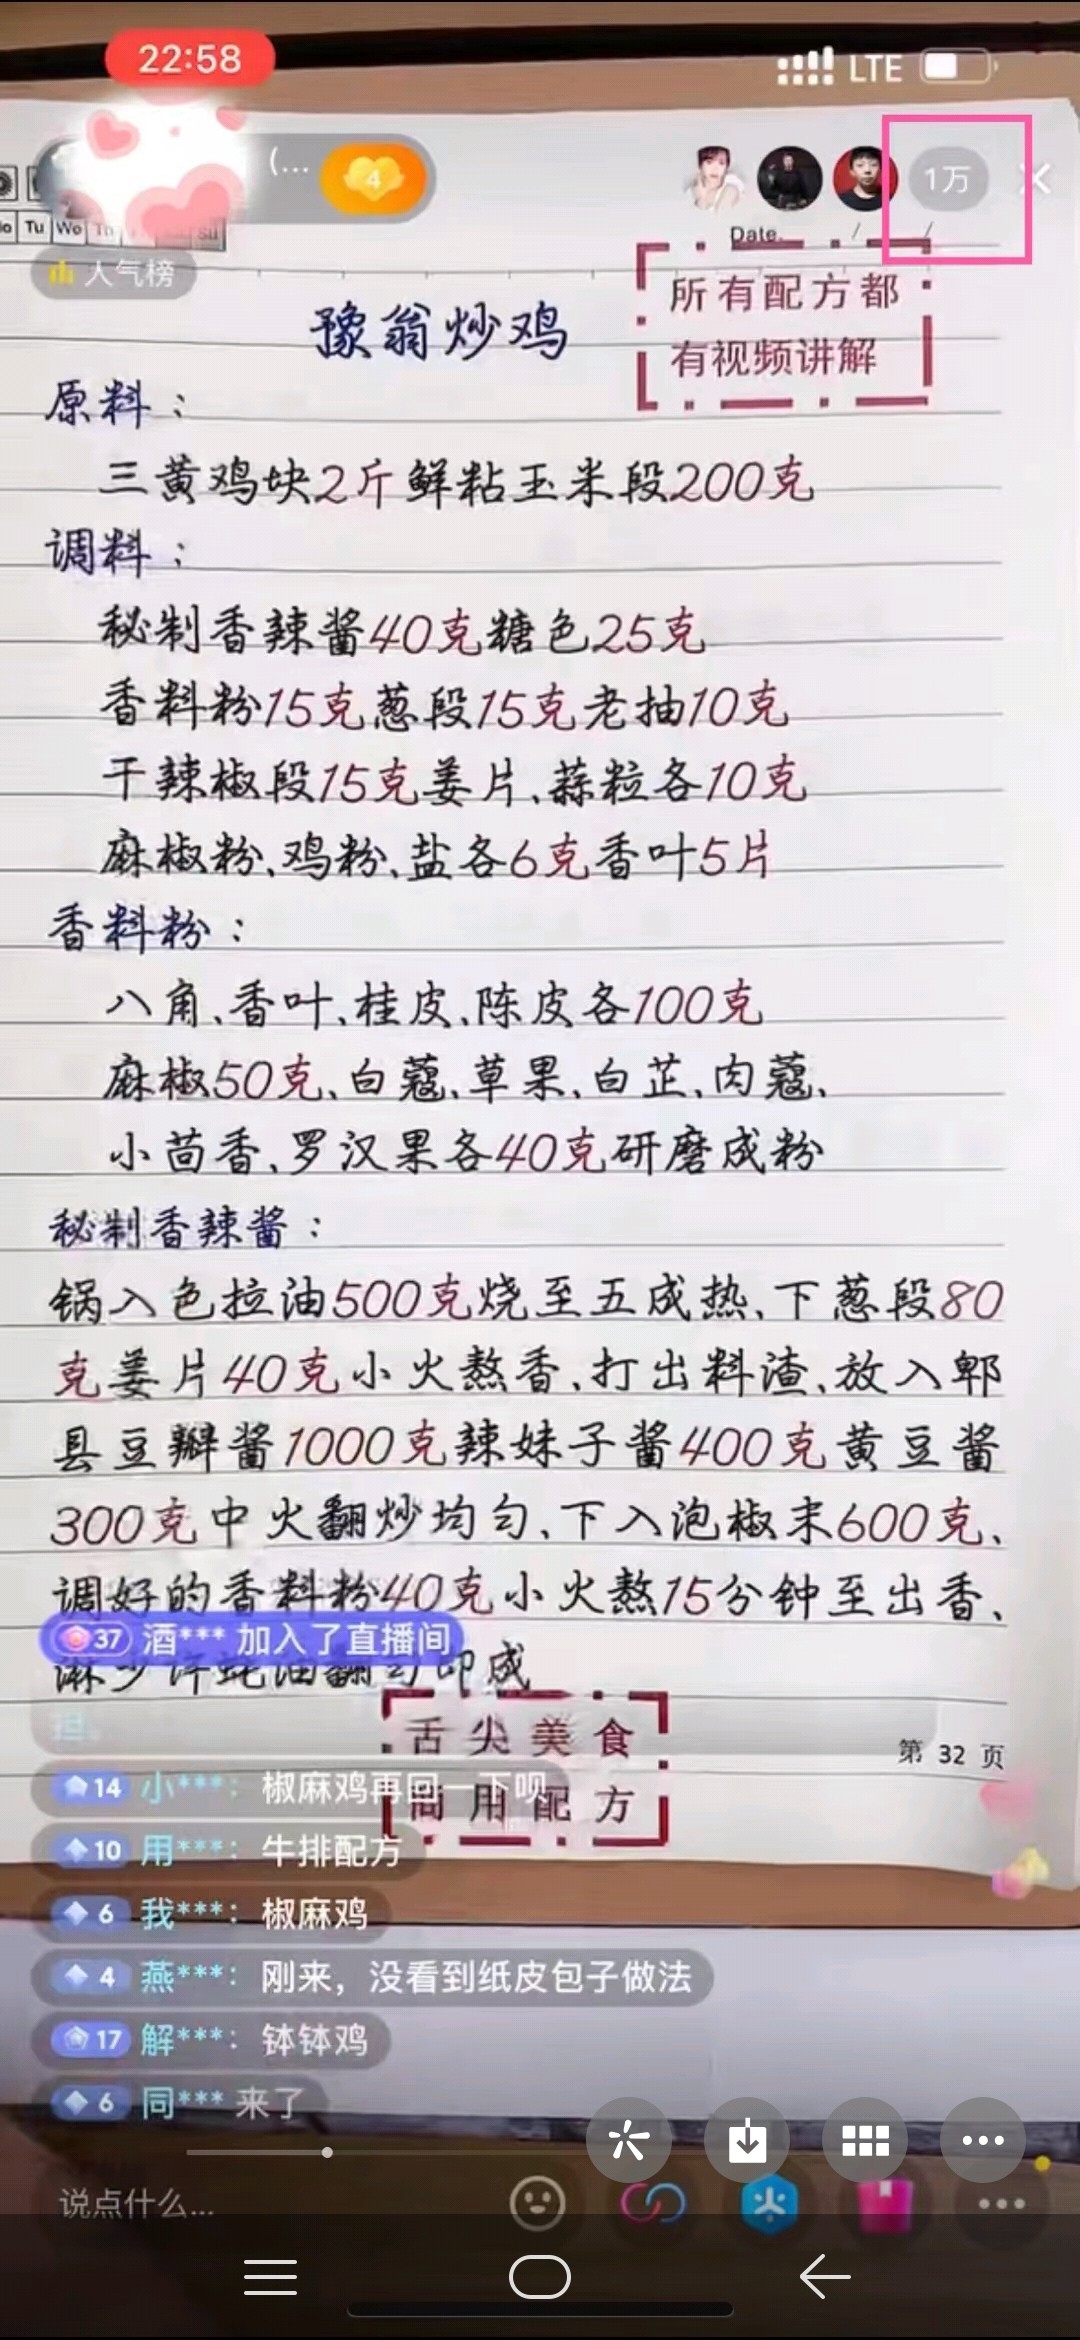 22:58
LTE
(...
4
1万
Tu We Th Su
Date. / /
人气榜
所有配方都
有视频讲解
豫翁炒鸡
原料：
三黄鸡块2斤鲜粘玉米段200克
调料：
秘制香辣酱40克糖色25克
香料粉15克葱段15克老抽10克
干辣椒段15克姜片、蒜粒各10克
麻椒粉、鸡粉、盐各6克香叶5片
香料粉：
八角、香叶、桂皮、陈皮各100克
麻椒50克、白蔻、草果、白芷、肉蔻、
小茴香、罗汉果各40克研磨成粉
秘制香辣酱：
锅入色拉油500克烧至五成热、下葱段80
克姜片40克小火熬香、打出料渣、放入郫
县豆瓣酱1000克辣妹子酱400克黄豆酱
300克中火翻炒均匀、下入泡椒末600克、
调好的香料粉40克小火熬15分钟至出香、
淋少许蚝油翻匀即成
37 酒*** 加入了直播间
舌尖美食
商用配方
第 32 页
14 小***： 椒麻鸡再回一下呗
10 用***： 牛排配方
6 我***： 椒麻鸡
4 燕***： 刚来，没看到纸皮包子做法
17 解***： 钵钵鸡
6 同*** 来了
说点什么...